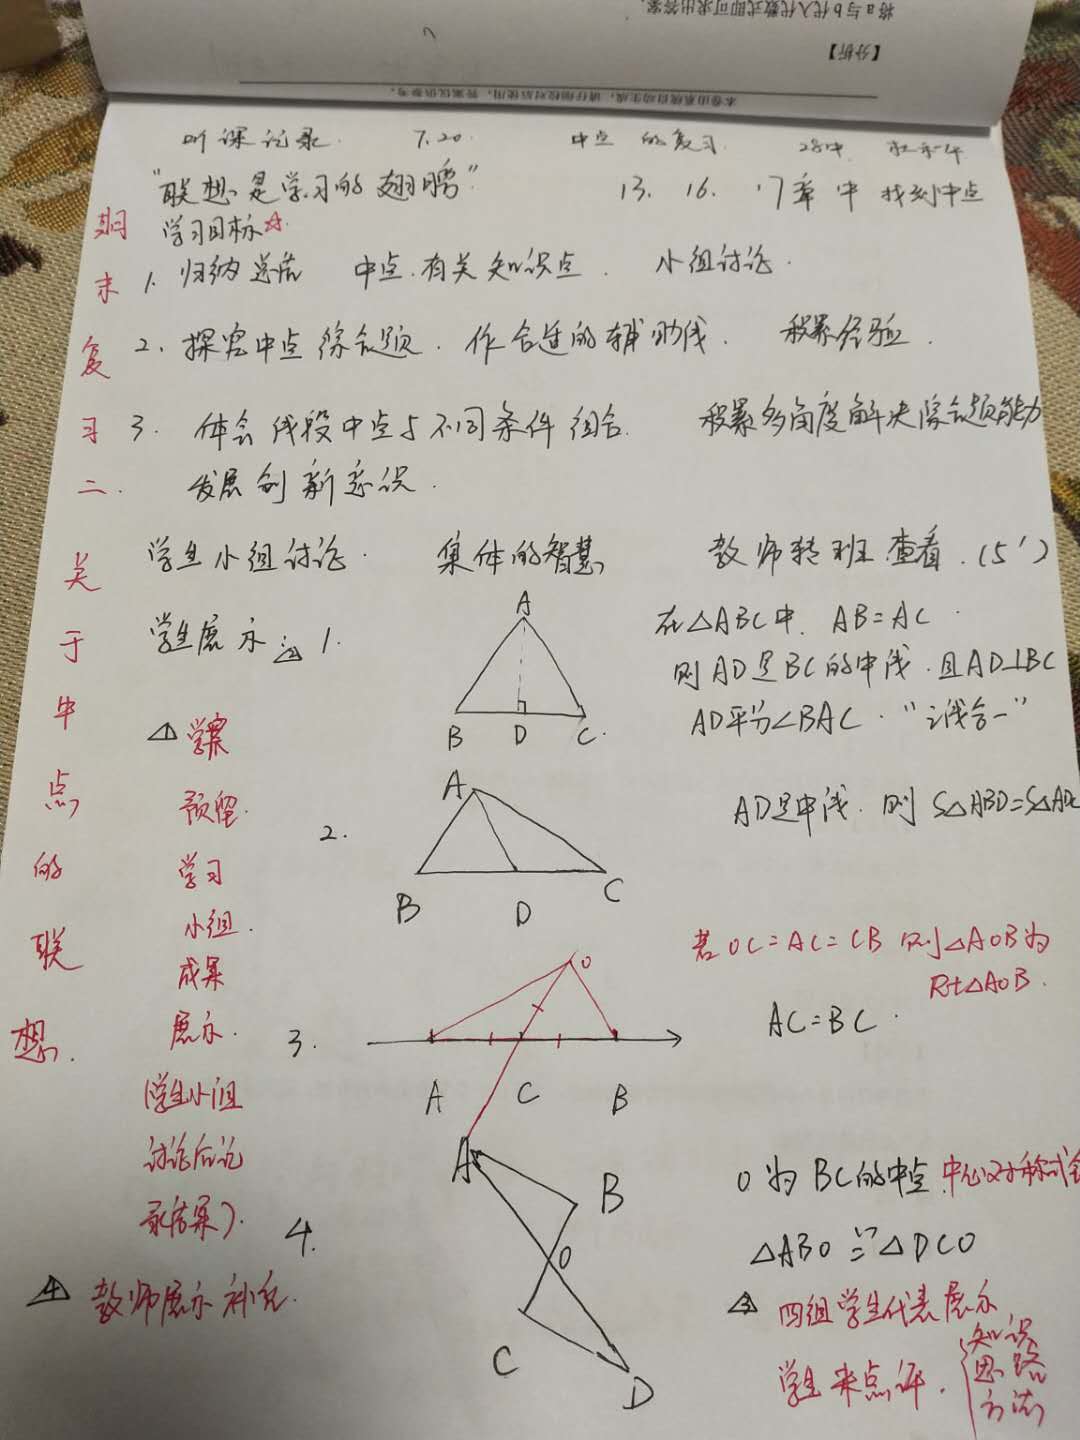 将 a 与 b 代入代数式即可求出答案.
【分析】
本卷由系统自动生成，请仔细校对后使用，答案仅供参考。
听课记录. 7.20. 中点 的复习 28中
"联想是学习的翅膀" 13. 16. 17章 中 找到中点
学习目标☆
1. 归纳总结 中点.有关知识点. 小组讨论.
2. 探究中点综合题. 作合适的辅助线. 积累经验.
3. 体会线段中点与不同条件组合. 积累多角度解决综合题能力
发展创新意识.
学生小组讨论. 集体的智慧 教师转班查看.(5')
学生展示 ② 1.
A
B D C.
在△ABC中. AB=AC.
则AD是BC的中线.且AD⊥BC
AD平分∠BAC."三线合一"
2.
A
B D C
AD是中线.则 S△ABD=S△ADC
3.
O
A C B
若OC=AC=CB 则△AOB为
Rt△AOB.
AC=BC.
4.
A
B
O
C
D
O为BC的中点.中心对称式全
△ABO≌△DCO
③ 四组学生代表展示
学生来点评.
知识
思路
方法
期末复习二.关于中点的联想.
① 学案
预留.
学习
小组.
成果
展示.
(学生小组
讨论后记
录答案).
④ 教师展示补充.